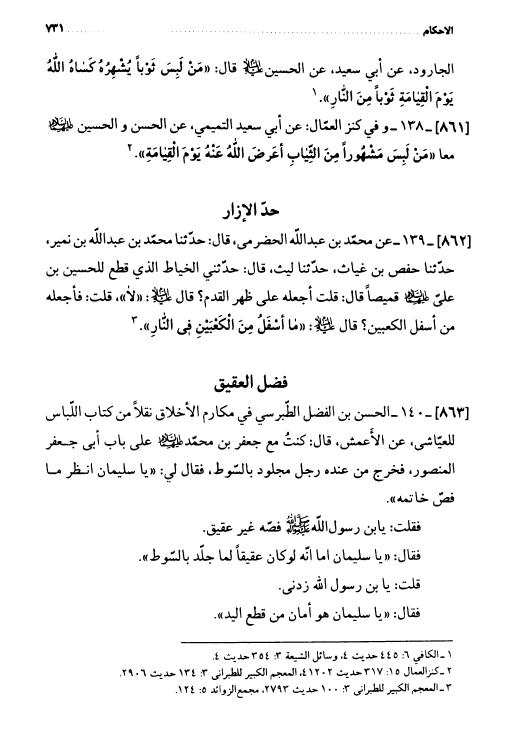 الاحكام ........ ٧٣١
الجارود، عن أبي سعيد، عن الحسين ﷼ قال: «مَنْ لَبِسَ ثَوْباً يُشْهِرُهُ كَسَاهُ اللهُ
يَوْمَ الْقِيَامَةِ ثَوْباً مِنَ النَّارِ».١
[٨٦١] ـ ١٣٨ ـ و في كنز العمّال: عن أبي سعيد التميمي، عن الحسن و الحسين
معا «مَنْ لَبِسَ مَشْهُوراً مِنَ الثِّيَابِ أَعرَضَ اللهُ عَنْهُ يَوْمَ الْقِيَامَةِ».٢
حدّ الإزار
[٨٦٢] ـ ١٣٩ ـ عن محمد بن عبدالله الحضرمى، قال: حدّثنا محمد بن عبدالله بن نمير،
حدّثنا حفص بن غياث، حدّثنا ليث، قال: حدّثني الخياط الذي قطع للحسين بن
عليّ قميصاً قال: قلت أجعله على ظهر القدم؟ قال : «لاٰ»، قلت: فأجعله
من أسفل الكعبين؟ قال : «مٰا أسْفَلُ مِنَ الْكَعْبَيْنِ فِى النَّارِ».٣
فضل العقيق
[٨٦٣] ـ ١٤٠ ـ الحسن بن الفضل الطّبرسي في مكارم الأخلاق نقلاً من كتاب اللّباس
للعيّاشى، عن الأَعمش، قال: كنتُ مع جعفر بن محمد على باب أبى جعفر
المنصور، فخرج من عنده رجل مجلود بالسّوط، فقال لي: «يا سليمان انظر ما
فصّ خاتمه».
فقلت: يابن رسول‌الله ﷺ فصّه غير عقيق.
فقال: «يا سليمان اما انّه لوكان عقيقاً لما جلّد بالسّوط».
قلت: يا بن رسول الله زدنى.
فقال: «يا سليمان هو أمان من قطع اليد».
١ ـ الكافي ٦: ٤٤٥ حديث ٤، وسائل الشيعة ٣: ٣٥٤ حديث ٤.
٢ ـ كنزالعمال ١٥: ٣١٧ حديث ٤١٢٠٢، المعجم الكبير للطبرانى ٣: ١٣٤ حديث ٢٩٠٦.
٣ ـ المعجم الكبير للطبرانى ٣: ١٠٠ حديث ٢٧٩٣، مجمع‌الزوائد ٥: ١٢٤.